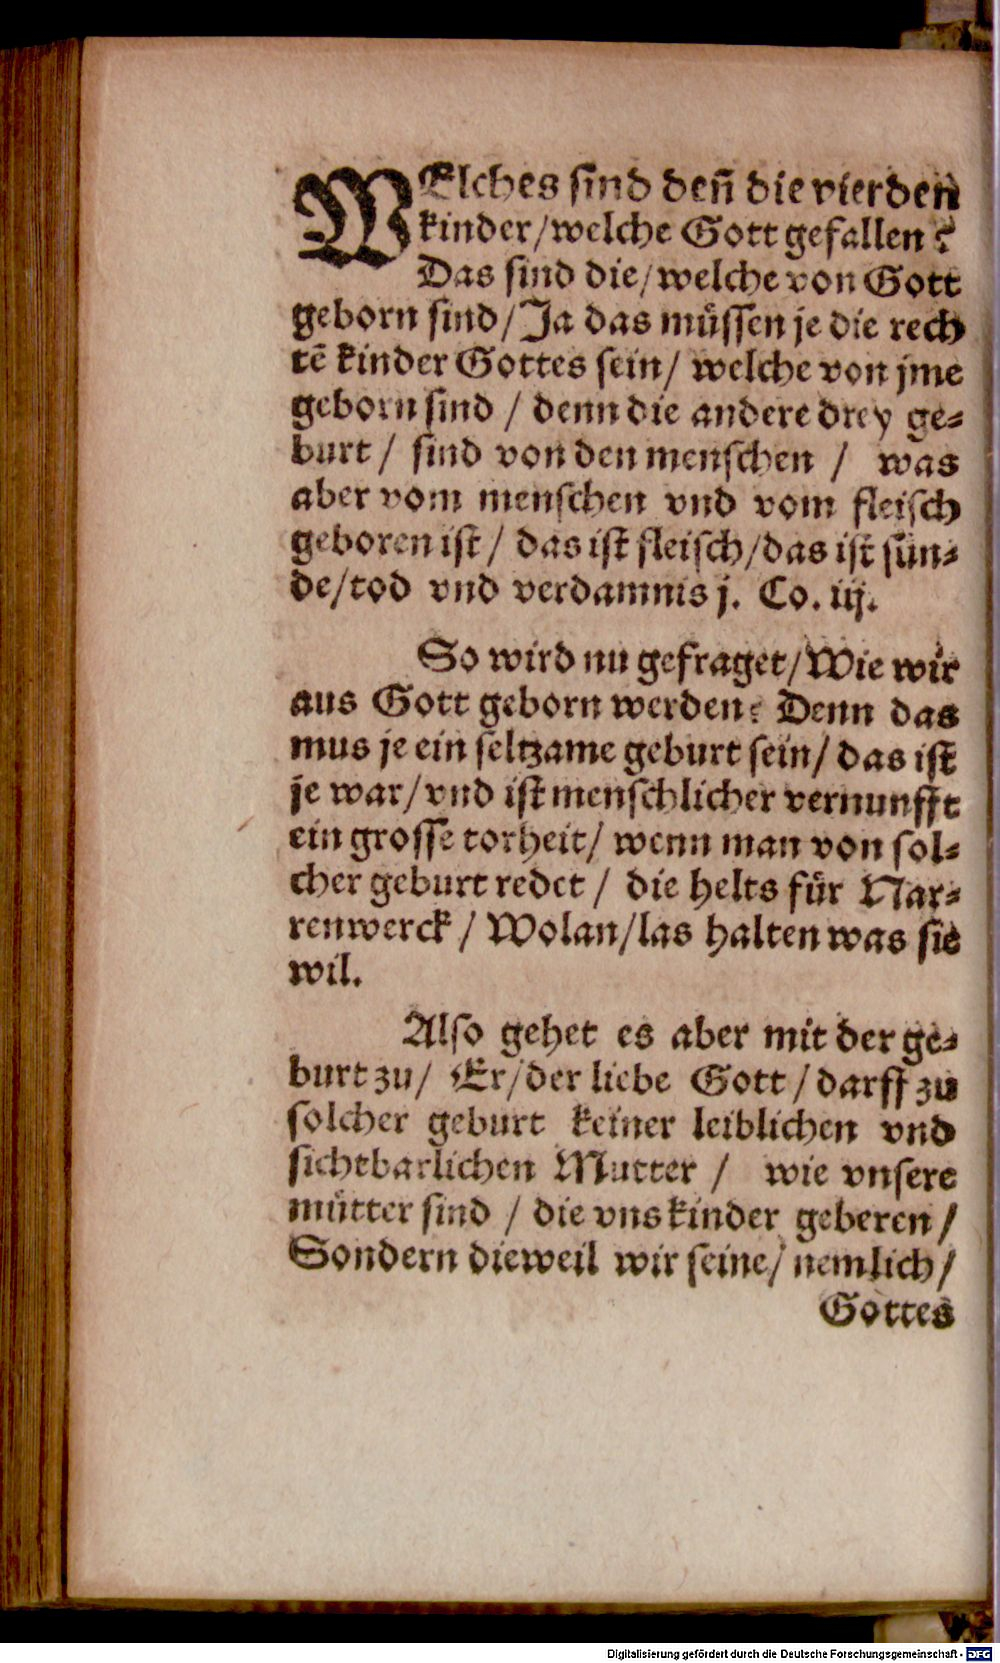 WElches sind deñ die vierden
kinder/welche Gott gefallen?
Das sind die/welche von Gott
geborn sind/Ja das müssen je die rech
tē kinder Gottes sein/ welche von jme
geborn sind / denn die andere drey ge-
burt / sind von den menschen / was
aber vom menschen vnd vom fleisch
geboren ist / das ist fleisch/das ist sün-
de/tod vnd verdamnis j. Co. iij.
So wird nu gefraget/Wie wir
aus Gott geborn werden? Denn das
mus je ein seltzame geburt sein/ das ist
je war/vnd ist menschlicher vernunfft
ein grosse torheit/ wenn man von sol-
cher geburt redet / die helts für Nar-
renwerck / Wolan/las halten was sie
wil.
Also gehet es aber mit der ge-
burt zu/ Er/der liebe Gott/darff zu
solcher geburt keiner leiblichen vnd
sichtbarlichen Mutter / wie vnsere
mütter sind / die vns kinder geberen/
Sondern dieweil wir seine/ nemlich/
Gottes
Digitalisierung gefördert durch die Deutsche Forschungsgemeinschaft - DFG